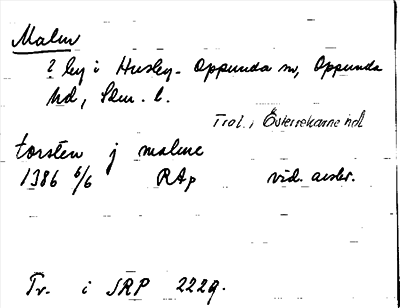 Malm
? by i Husby-Oppunda sn, Oppunda
hd, Söm. l.
Trol. i Österrekarne hd
torsten j malme
1386 6/6 RAp vid. avskr.
Tr. i SRP 2229.